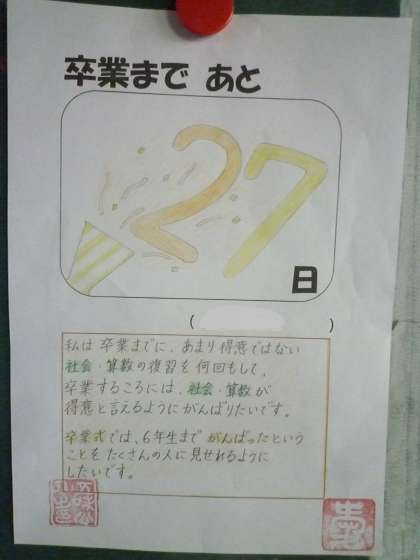 卒業まで あと
27
日
(　　　)
私は卒業までに、あまり得意ではない
社会・算数の復習を何回もして、
卒業するころには、社会・算数が
得意と言えるようにがんばりたいです。
卒業式では、6年生までがんばったという
ことをたくさんの人に見せれるように
したいです。